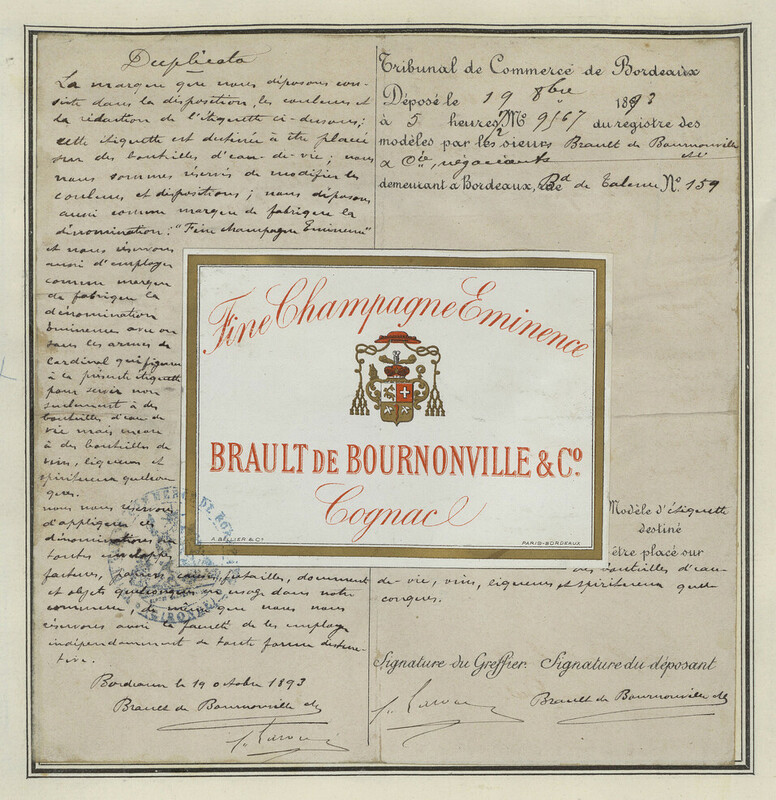 Duplicata
La marque que nous déposons con-
siste dans la disposition, les couleurs et
la rédaction de l'étiquette ci-dessous;
cette étiquette est destinée à être placée
sur des bouteilles d'eau-de-vie; nous
nous sommes réservés de modifier les
couleurs et dispositions; nous déposons
aussi comme marque de fabrique la
dénomination: "Fine champagne Eminence"
et nous réservons
aussi d'employer
comme marque
de fabrique la
dénomination
Eminence avec ou
sans les armes de
Cardinal qui figurent
à la présente étiquette
pour servir non
seulement à des
bouteilles d'eau-de-
vie mais encore
à des bouteilles de
vins, liqueurs et
spiritueux quelcon-
ques.
nous nous réservons
d'appliquer ces
dénominations sur
toutes enveloppes
factures, caisses, futailles, document
et objets quelconques en usage dans notre
commerce, de même que nous nous
réservons aussi la faculté de les employer
indépendamment de toute forme distinc-
tive.
Bordeaux le 19 octobre 1893
Brault de Bournonville &c
Tribunal de Commerce de Bordeaux
Déposé le 19 8bre 1893
à 5 heures No 9567 du registre des
modèles par les sieurs Brault de Bournonville
& Cie, négociants
demeurant à Bordeaux, Bd de Talence No 159
Fine Champagne Eminence
BRAULT DE BOURNONVILLE & Co
Cognac
PARIS-BORDEAUX
Modèle d'étiquette
destiné
être placé sur
des bouteilles d'eau-
de-vie, vins, liqueurs et spiritueux quel-
conques.
Signature du Greffier. Signature du déposant
Brault de Bournonville &c
COMMERCE DE BORDEAUX
GIRONDE